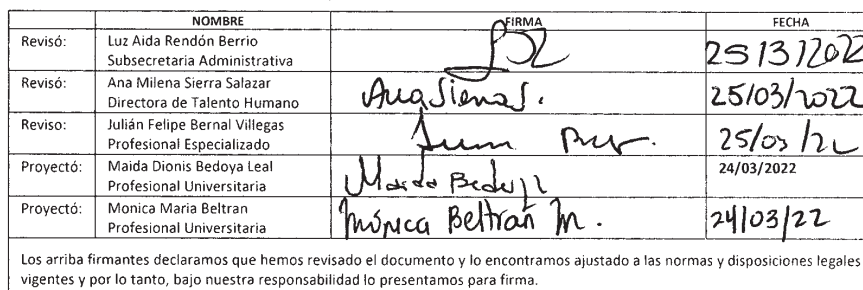 NOMBRE FIRMA FECHA
Revisó: Luz Aida Rendón Berrio
Subsecretaria Administrativa 25/3/2022
Revisó: Ana Milena Sierra Salazar
Directora de Talento Humano Ana Sierra S. 25/03/2022
Reviso: Julián Felipe Bernal Villegas
Profesional Especializado 25/03/22
Proyectó: Maida Dionis Bedoya Leal 24/03/2022
Profesional Universitaria Maida Bedoya
Proyectó: Monica Maria Beltran
Profesional Universitaria Mónica Beltrán M. 24/03/22
Los arriba firmantes declaramos que hemos revisado el documento y lo encontramos ajustado a las normas y disposiciones legales
vigentes y por lo tanto, bajo nuestra responsabilidad lo presentamos para firma.